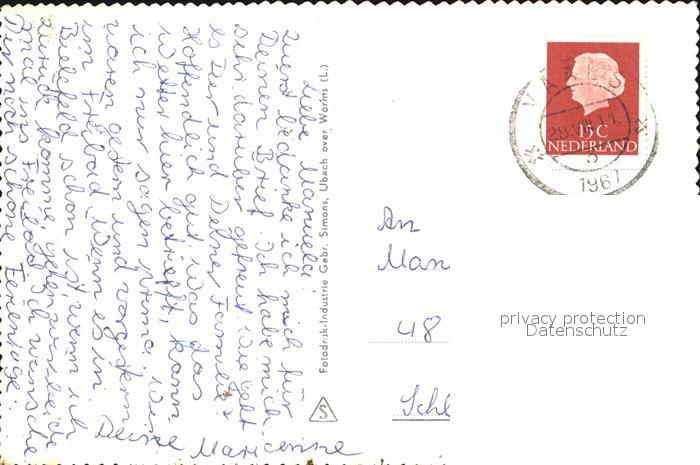 Liebe Manuela,
zuerst bedanke ich mich für
Deinen Brief. Ich habe mich
sehr darüber gefreut. Wie geht
es Dir und Deiner Familie?
Hoffentlich gut. Was das
Wetter hier betrifft, kann
ich nur sagen prima. Wir
waren gestern und vorgestern
im Freibad. Wenn es in
Bielefeld schön ist, wenn ich
zurück komme, gehen wir
mal ins Freibad. Ich wünsche
Dir noch schöne Ferientage.
Deine Marianne
Fotodruk-Industrie Gebr. Simons, Ubach over Worms (L.)
S
15 C
NEDERLAND
VAALS
28.VII.
1967
An
Man
48
Schl
privacy protection
Datenschutz